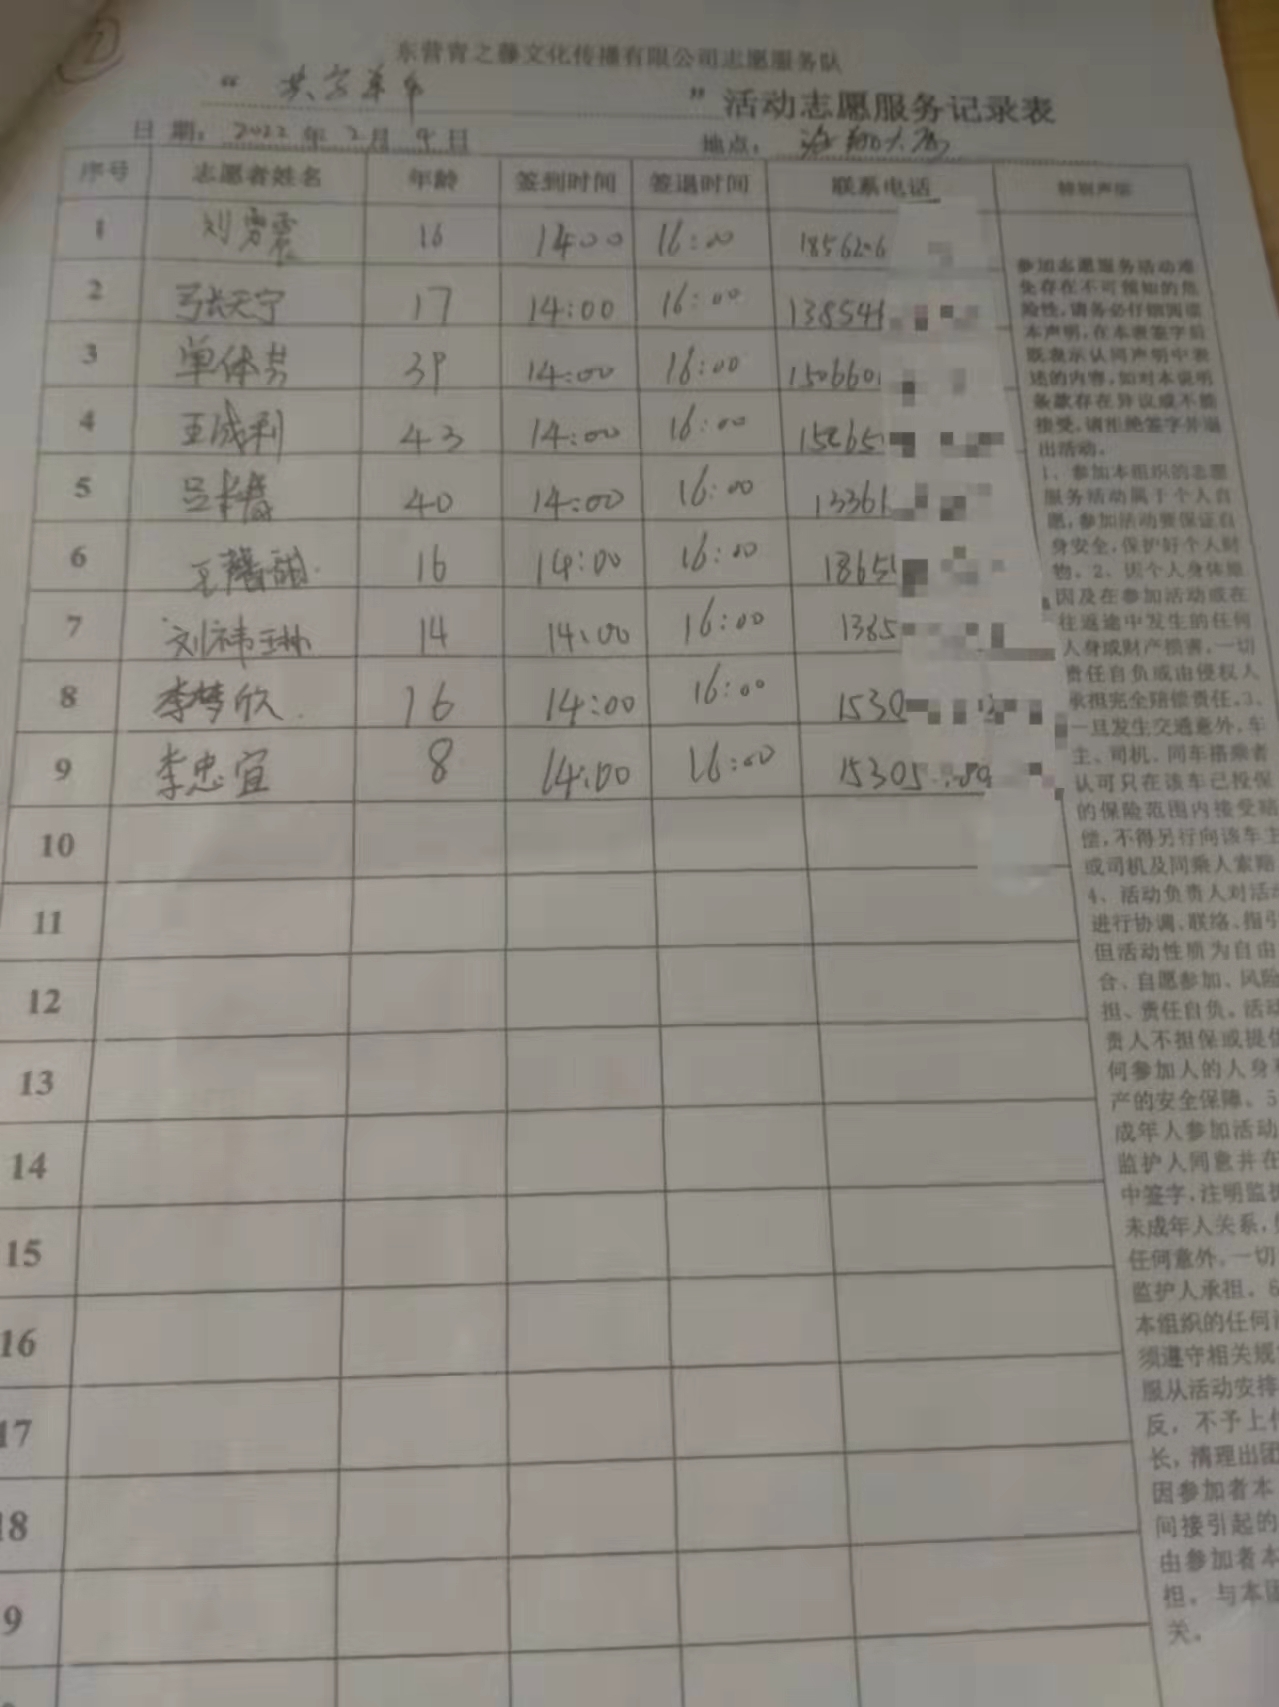 东营青之藤文化传播有限公司志愿服务队
“共享单车”活动志愿服务记录表
日期：2022年2月9日 地点：
序号 志愿者姓名 年龄 签到时间 签退时间 联系电话 特别声明
1 刘 16 14:00 16:00
2 张天宁 17 14:00 16:00 138541
3 单体芳 39 14:00 16:00 1506601
4 王成利 43 14:00 16:00
5 吕 40 14:00 16:00 13361
6 王馨甜 16 14:00 16:00 18651
7 刘祎琳 14 14:00 16:00 1385
8 李梦欣 16 14:00 16:00 1530
9 李忠宜 8 14:00 16:00 15305
10
11
12
13
14
15
16
17
18
9
参加志愿服务活动难
免存在不可预知的危
险性，请务必仔细阅读
本声明，在本表签字后
既表示认同声明中表
述的内容，如对本说明
条款存在异议或不能
接受，请拒绝签字并退
出活动。
1、参加本组织的志愿
服务活动属于个人自
愿，参加活动要保证自
身安全，保护好个人财
物。2、因个人身体原
因及在参加活动或在
往返途中发生的任何
人身或财产损害，一切
责任自负或由侵权人
承担完全赔偿责任。3、
一旦发生交通意外，车
主、司机、同车搭乘者
认可只在该车已投保
的保险范围内接受赔
偿，不得另行向该车主
或司机及同乘人索赔
4、活动负责人对活动
进行协调、联络、指引
但活动性质为自由
合、自愿参加、风险
担、责任自负。活动
责人不担保或提供
何参加人的人身
产的安全保障。5
成年人参加活动
监护人同意并在
中签字，注明监护
未成年人关系，
任何意外，一切
监护人承担。6
本组织的任何
须遵守相关规
服从活动安排
反，不予上
长，清理出团
因参加者本
间接引起的
由参加者本
担，与本团
关。